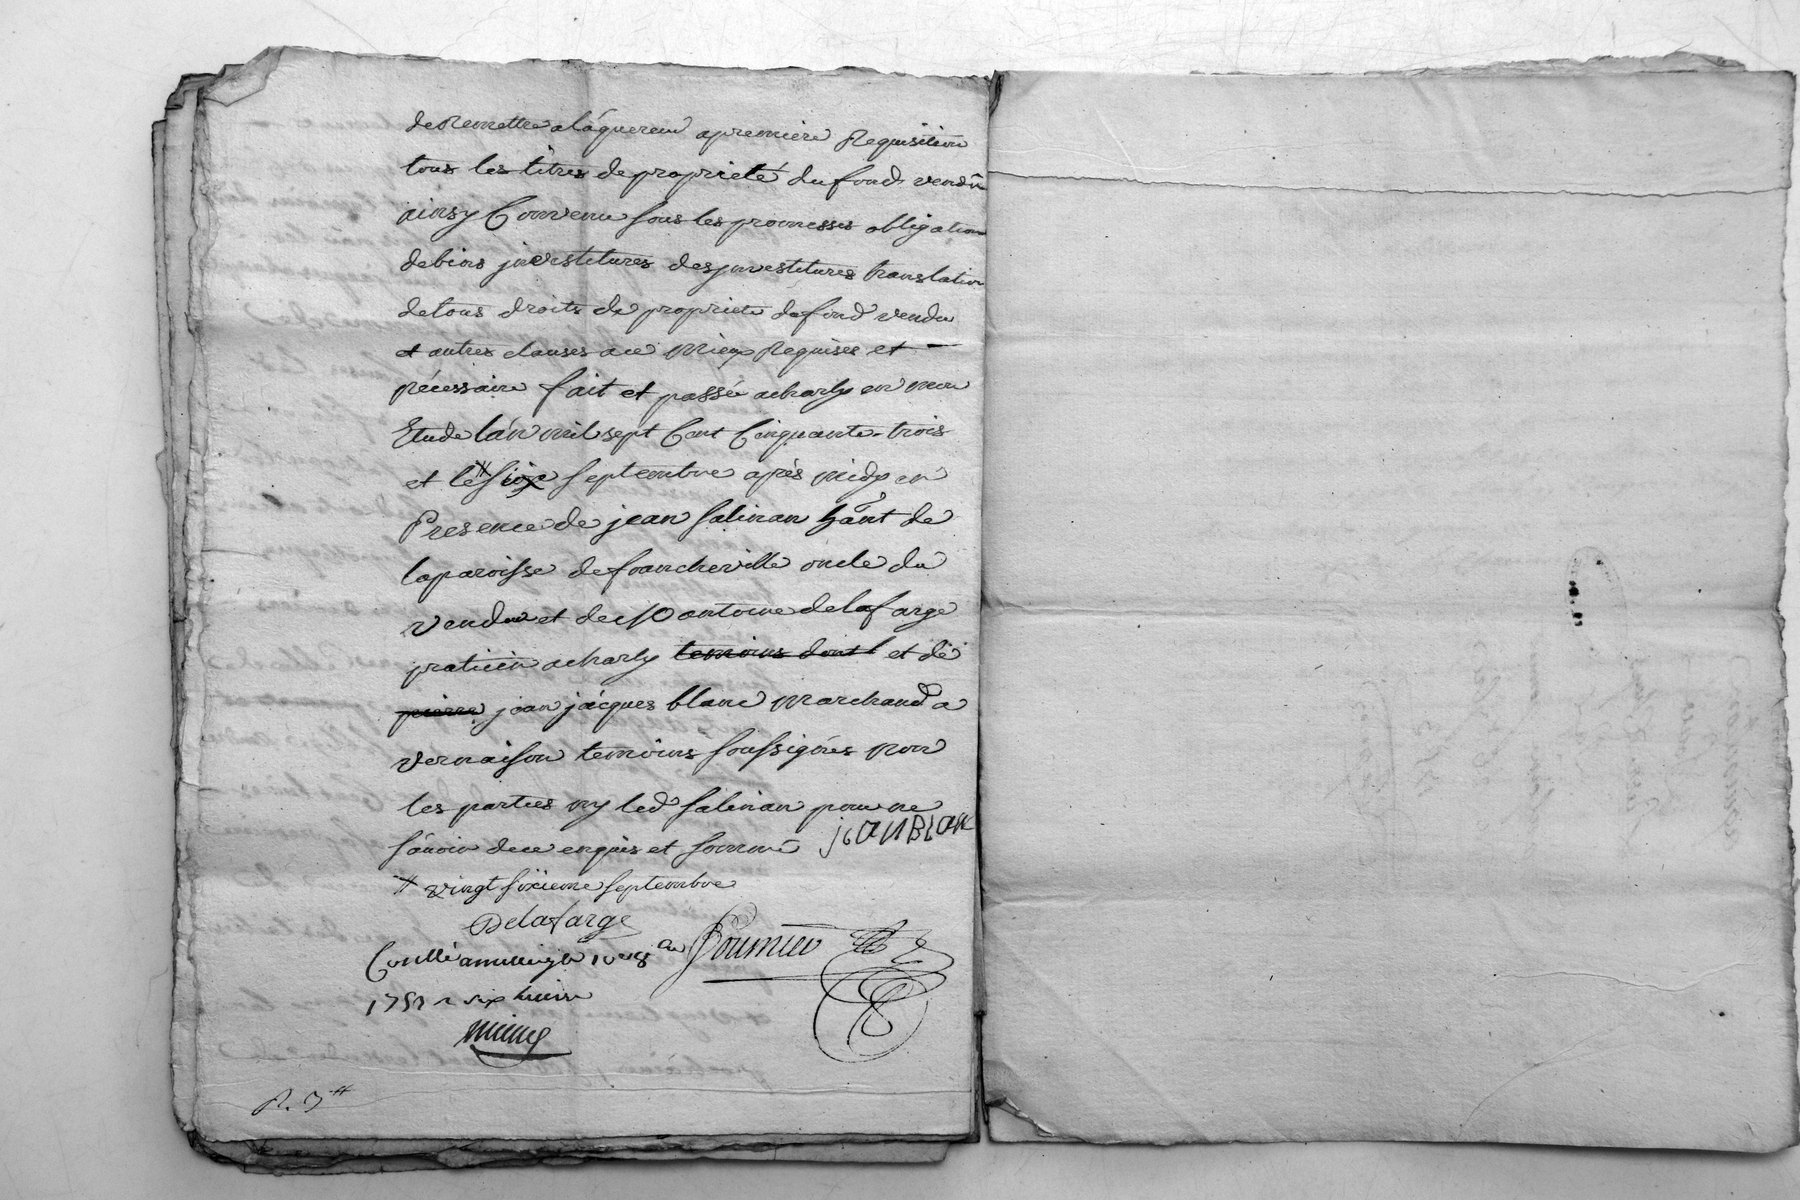 de Remettre a láquereur a premiere Requisition
tous les titres de proprieté du fond vendu
ainsy Convenu sous les promesses obligation
de biens jnvestitures desjnvestitures translation
de tous droits de proprieté de fond vendu
et autres clauses au mieux Requises et
nécessaire fait et passée acharly en mon
Etude lán mil sept Cent Cinquante-trois
et le # six septembre après midy en
Presence de jean salinian hãnt de
laparoisse de francheville oncle du
vendeur et de sr antoine delafarge
praticien acharly temoins dont et de
pierre jean jácques blanc marchand a
vernaison temoins soussignés non
les parties ny led salinian pour ne
sávoir de ce enquis et sommé jEANBLANC
# vingt sixieme septembre
Delafarge
Conllé a 8bre
1753 r six livres
R. 3 #